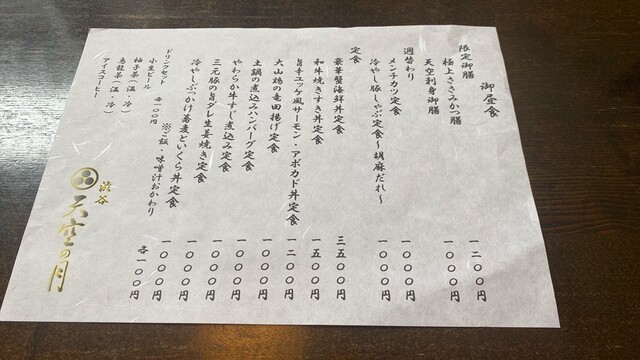 御昼食
限定御膳
極上ささみかつ膳 一二〇〇円
天空刺身御膳 一〇〇〇円
週替わり
メンチカツ定食 一〇〇〇円
冷やし豚しゃぶ定食～胡麻だれ～ 一〇〇〇円
定食
豪華蟹海鮮丼定食 三五〇〇円
和牛焼きすき丼定食 一五〇〇円
旨辛ユッケ風サーモン・アボカド丼定食 一二〇〇円
大山鶏の竜田揚げ定食 一〇〇〇円
土鍋の煮込みハンバーグ定食 一〇〇〇円
やわらか牛すじ煮込み定食 一〇〇〇円
三元豚の旨ダレ生姜焼き定食 一〇〇〇円
冷やしぶっかけ蕎麦といくら丼定食 一〇〇〇円
※ご飯・味噌汁おかわり 各一〇〇円
ドリンクセット
小生ビール 各一〇〇円
柚子茶(温・冷)
烏龍茶(温・冷)
アイスコーヒー
渋谷
天空の月